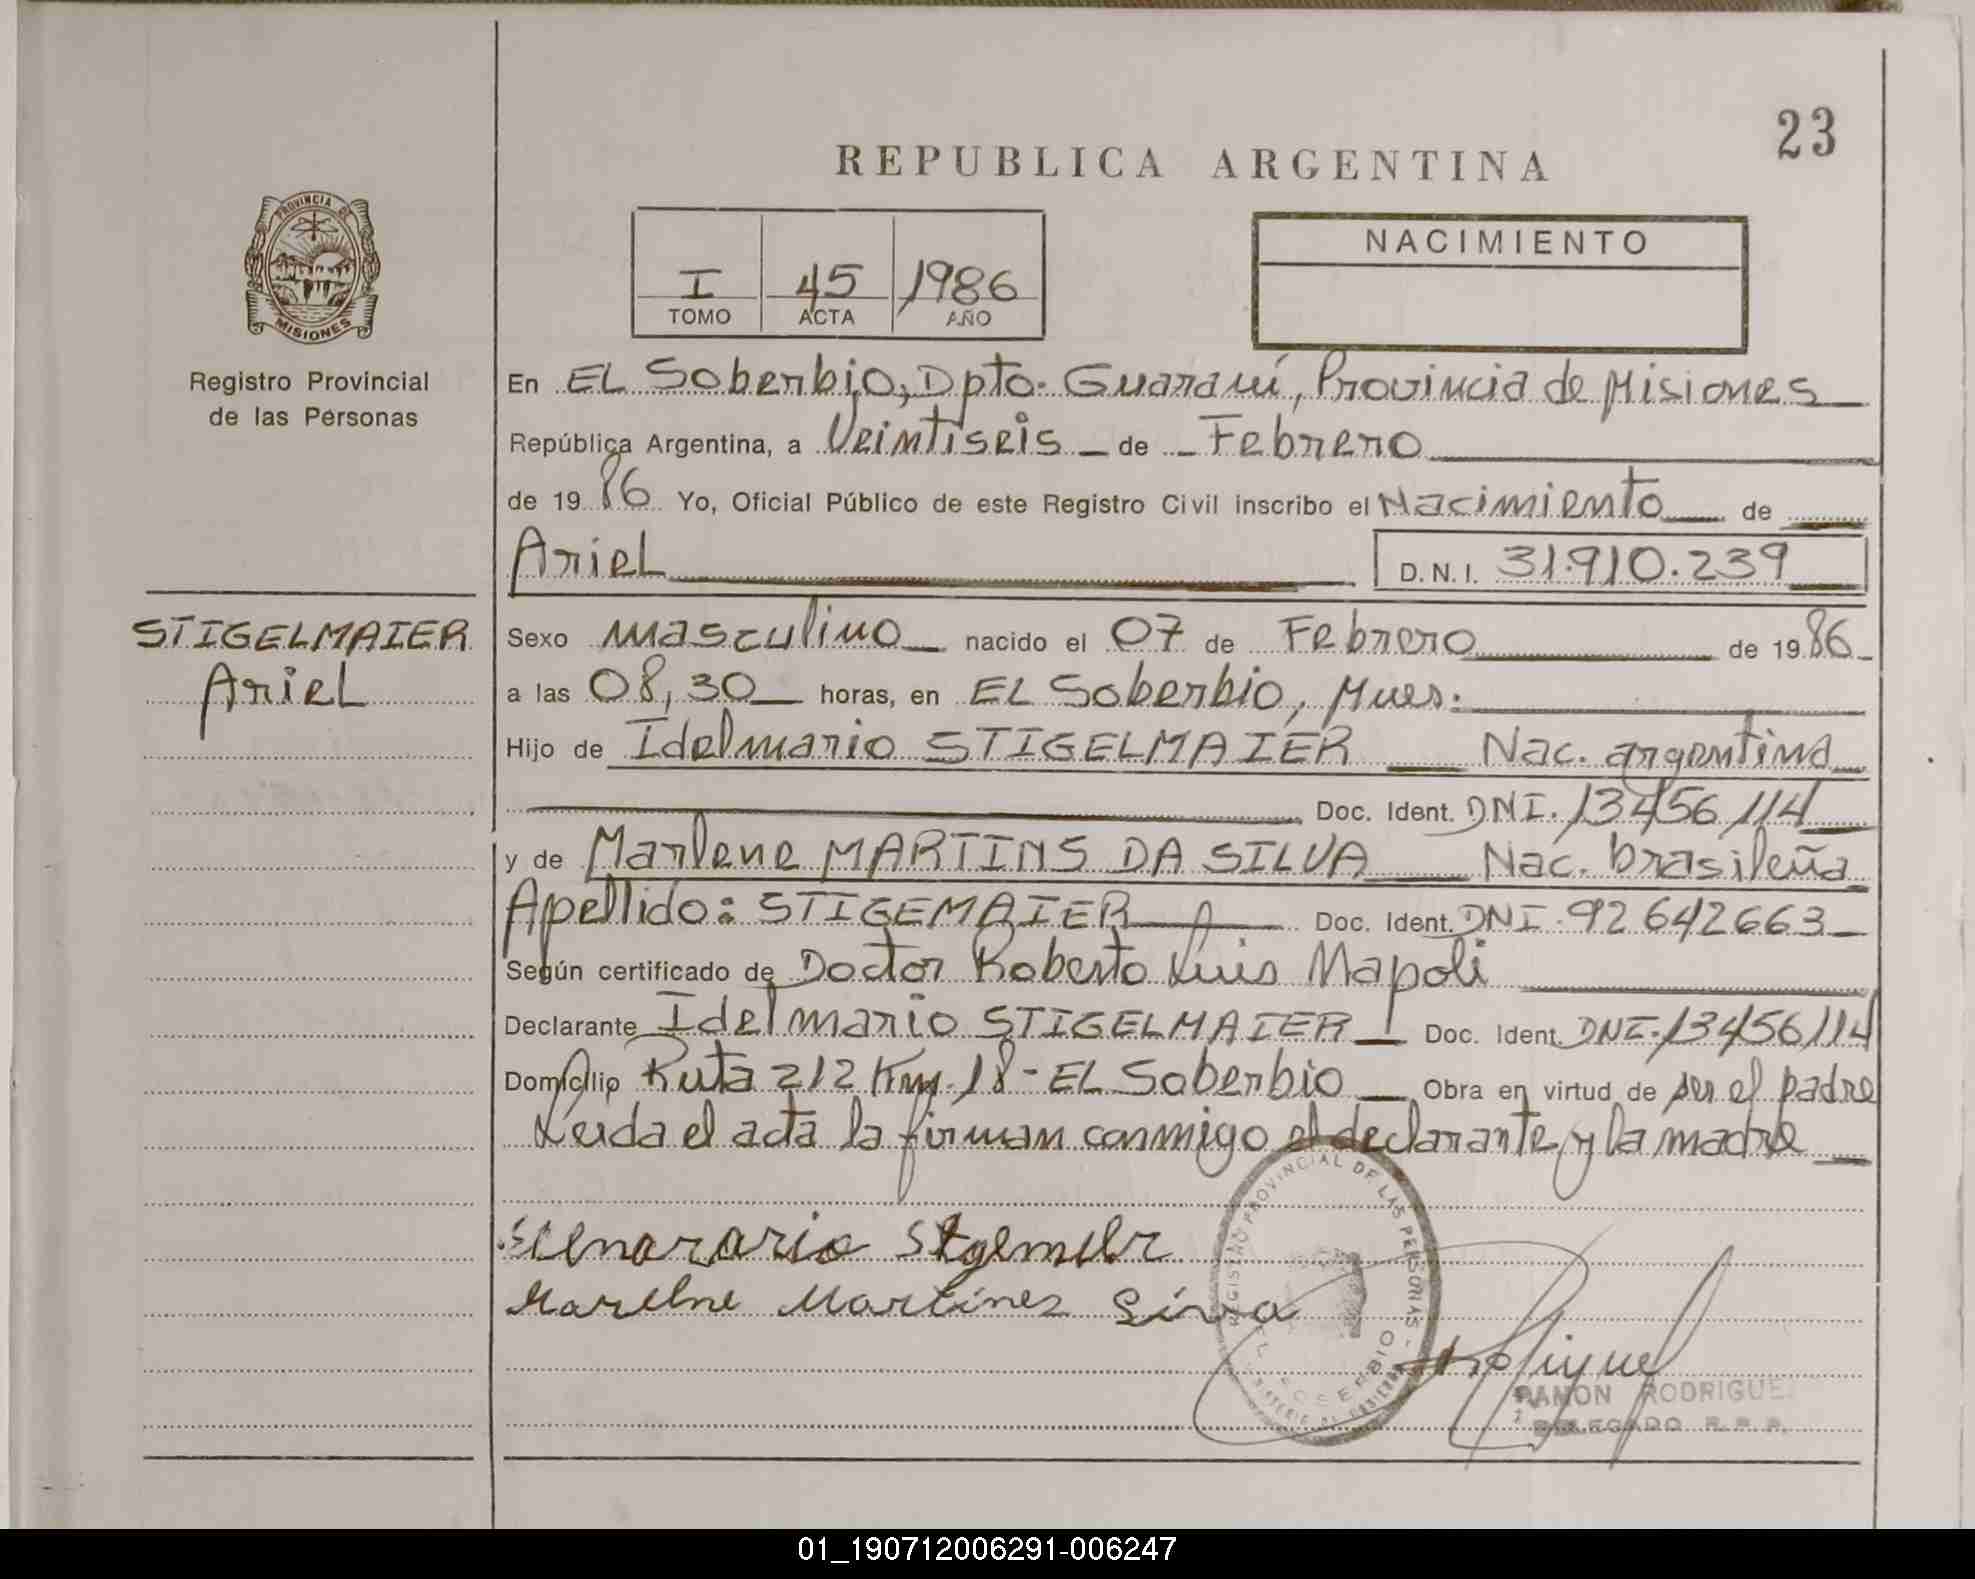 23
REPUBLICA ARGENTINA
PROVINCIA DE
MISIONES
Registro Provincial
de las Personas
I 45 1986
TOMO ACTA AÑO
NACIMIENTO
En EL Soberbio, Dpto. Guaraní, Provincia de Misiones
República Argentina, a Veintiseis de Febrero
de 1986 Yo, Oficial Público de este Registro Civil inscribo el Nacimiento de
Ariel D.N.I. 31.910.239
STIGELMAIER
Ariel
Sexo masculino nacido el 07 de Febrero de 1986
a las 08,30 horas, en EL Soberbio, Mnes.
Hijo de Idelmario STIGELMAIER Nac. argentina
Doc. Ident. DNI. 13456114
y de Marlene MARTINS DA SILVA Nac. brasileña
Apellido: STIGEMAIER Doc. Ident. DNI. 92642663
Según certificado de Doctor Roberto Luis Napoli
Declarante Idelmario STIGELMAIER Doc. Ident. DNI. 13456114
Domicilio Ruta 212 Km. 18 - EL Soberbio Obra en virtud de ser el padre
Leida el acta la firman conmigo el declarante y la madre
Marlene Martines Silva
REGISTRO PROVINCIAL DE LAS PERSONAS
EL SOBERBIO
RAMON RODRIGUE
DELEGADO R.P.P.
01_190712006291-006247